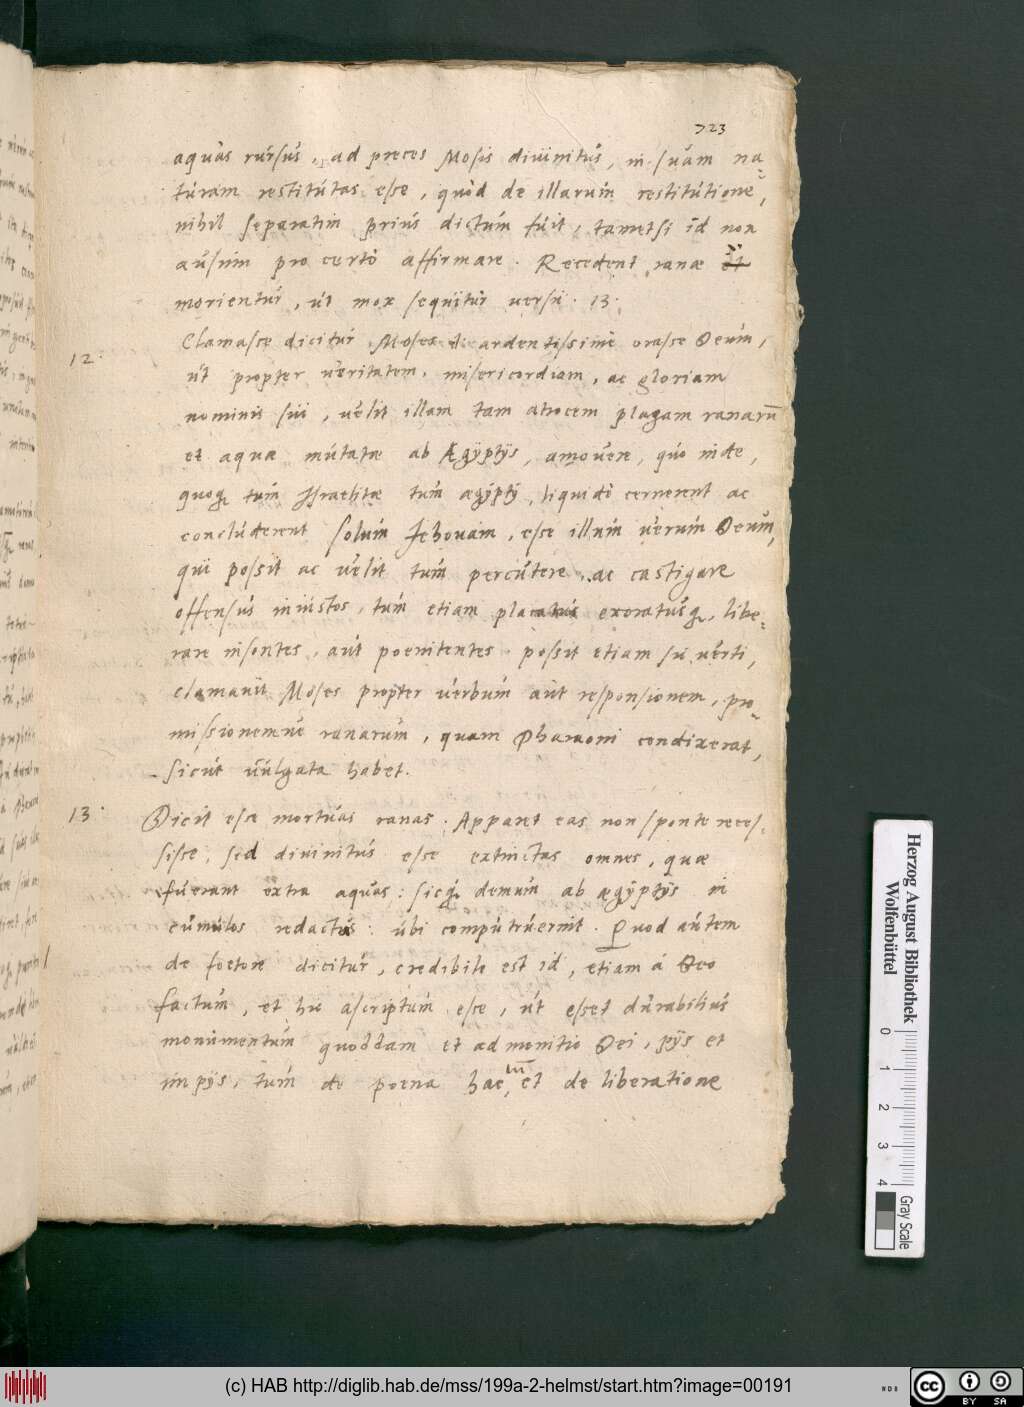 723
aquas rursus, ad preces Mosis divinitus, in suam na-
turam restitutas esse, quod de illarum restitutione,
nihil separatim prius dictum fuit, tametsi id non
ausim pro certo affirmare. Recedent ranæ et
morientur, ut mox sequitur versu. 13.
12. Clamasse dicitur Moses i. ardentissime orasse Deum,
ut propter veritatem, misericordiam, ac gloriam
nominis sui, velit illam tam atrocem plagam ranarū
et aquæ mutatæ ab Ægyptijs, amovere, quo inde,
quoq; tum Israelitæ tum ægyptij, liquido cernerent ac
concluderent solum Jehovam, esse illum verum Deum,
qui possit ac velit tum percutere, ac castigare
offensus iniustos, tum etiam placatus exoratusq;, libe-
rare insontes, aut poenitentes. possit etiam sic verti,
clamavit Moses propter verbum aut responsionem, pro-
missionemve ranarum, quam Pharaoni condixerat,
sicut vulgata habet.
13. Dicit esse mortuas ranas. Apparet eas non sponte reces-
sisse, sed divinitus esse extinctas omnes, quæ
fuerant extra aquas: sicq; demum ab ægyptijs in
cumulos redactas: ubi computruerint. Quod autem
de foetore dicitur, credibile est id, etiam á Deo
factum, et hic ascriptum esse, ut esset durabilius
monumentum quoddam et admonitio Dei, pijs et
impijs, tum de poena hac, tū et de liberatione
Herzog August Bibliothek
Wolfenbüttel
0 1 2 3 4
Gray Scale
(c) HAB http://diglib.hab.de/mss/199a-2-helmst/start.htm?image=00191
cc BY SA